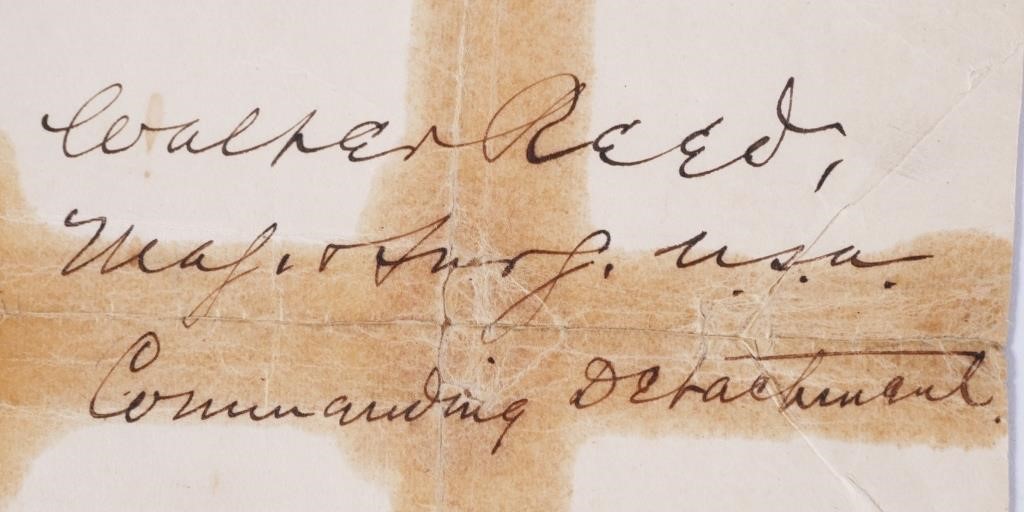 Walter Reed,
Maj. & Surg. U.S.A.
Commanding Detachment.